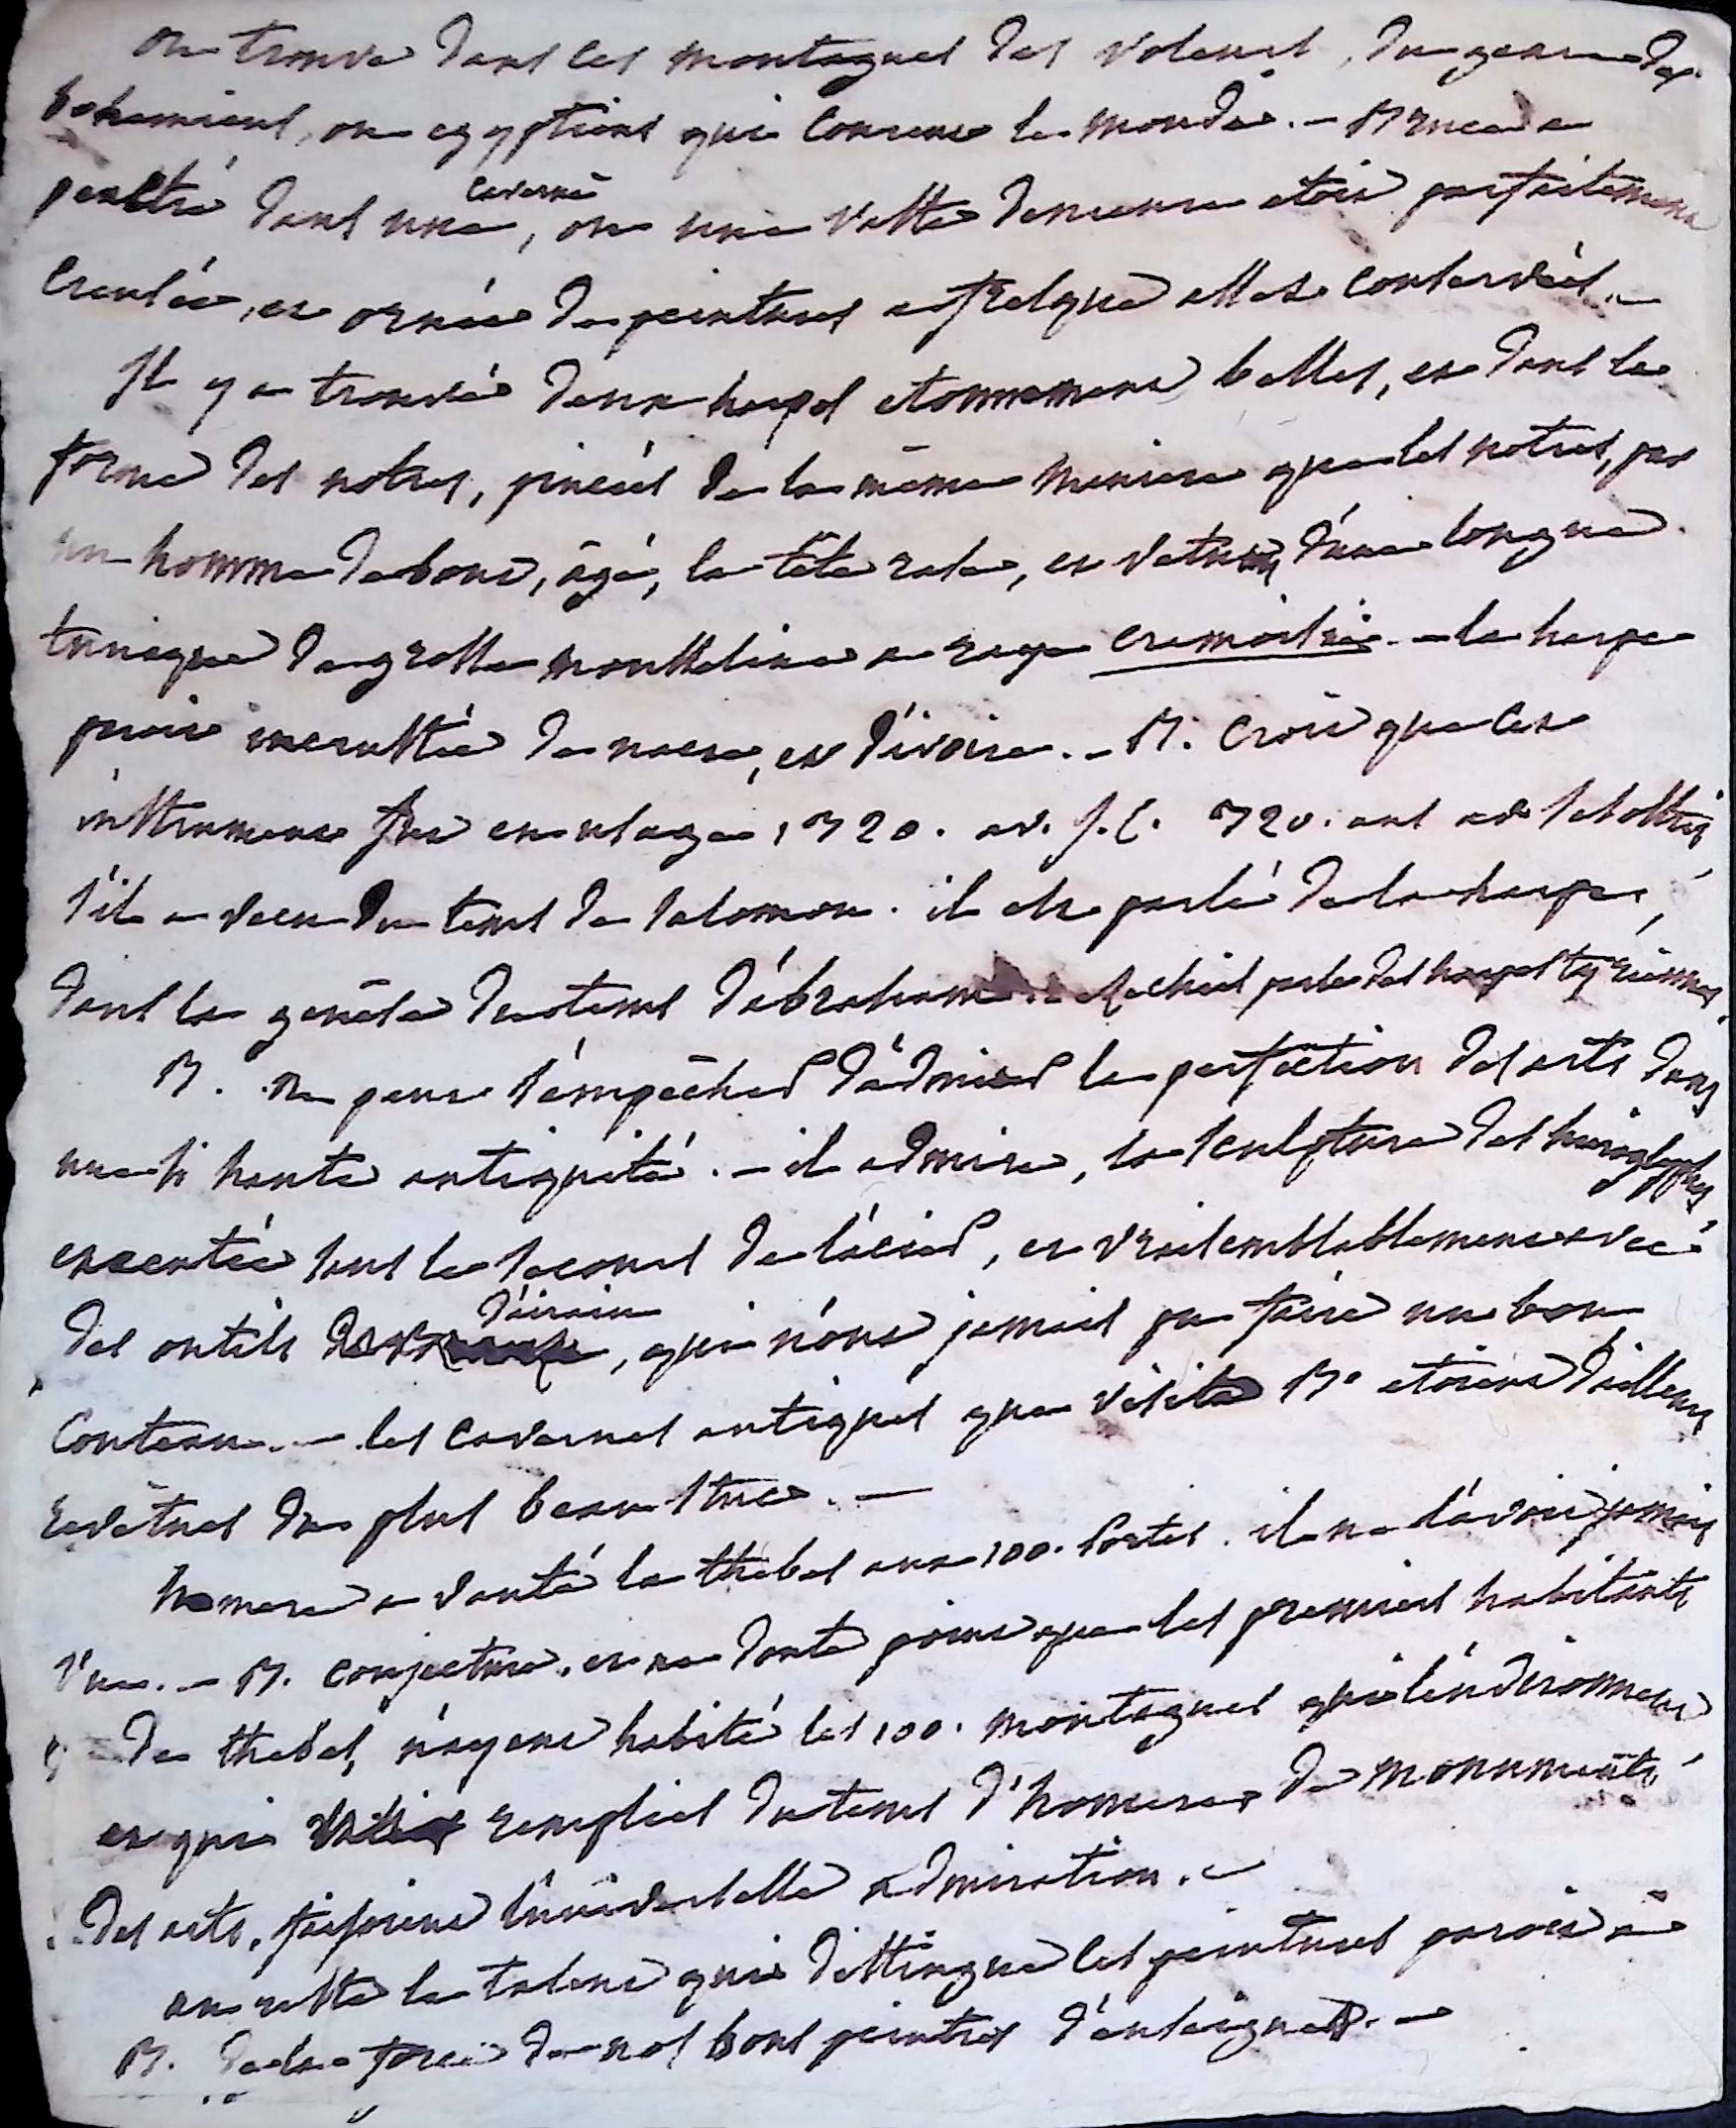 on trouve dans ces montagnes des voleurs, du genre des
bohemiens, ou egyptiens qui courent le monde. - Bruce a
penetré dans une caverne, où une vaste demeure etoit parfaitement
creusée, et ornée de peintures a fresque assez conservées. -
Il y a trouvé deux harpes etonnemment belles, et dans la
forme des notres, pincées de la même maniere que les notres, par
un homme debout, âgé, la tête rase, et vetu d'une longue
tunique de grosse mousseline a raye cramoisie. - la harpe
paroit incrustée de nacre, et d'ivoire. - B. croit que cet
instrument fut en usage 1720. av. J.C. 720. ans av. Sesostris,
s'il a vecu du tems de Salomon. il est parlé de la harpe,
dans la genêse du tems d'abraham. Ezechiel parle des harpes tyriennes.
B. ne peut s'empêcher d'admirer la perfection des arts dans
une si haute antiquité. - il admire, la sculpture des hieroglyphes
executée sans le secours de l'acier, et vraisemblablement avec
des outils d'airain, qui n'ont jamais pu faire un bon
couteau. - les cavernes antiques que visita B. etoient d'ailleurs
revêtues du plus beau stuc. -
homere a vanté la thebes aux 100. portes. il ne l'avoit jamais
vue. - B. conjecture, et ne doute point que les premiers habitants
de thebes, n'ayent habité les 100. montagnes qui l'environnent
et qui remplies du tems d'homere, de monuments
des arts, faisoient l'universelle admiration. -
au reste le talent qui distingue les peintures paroit a
B. de la force de nos bons peintres d'enseignes. -